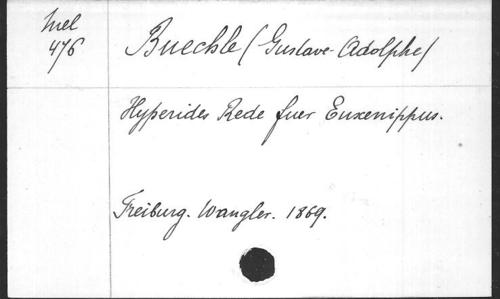 Mel
476
Buechle (Gustave-Adolphe)
Hyperides Rede fuer Euxenippus.
Freiburg. Wangler. 1869.